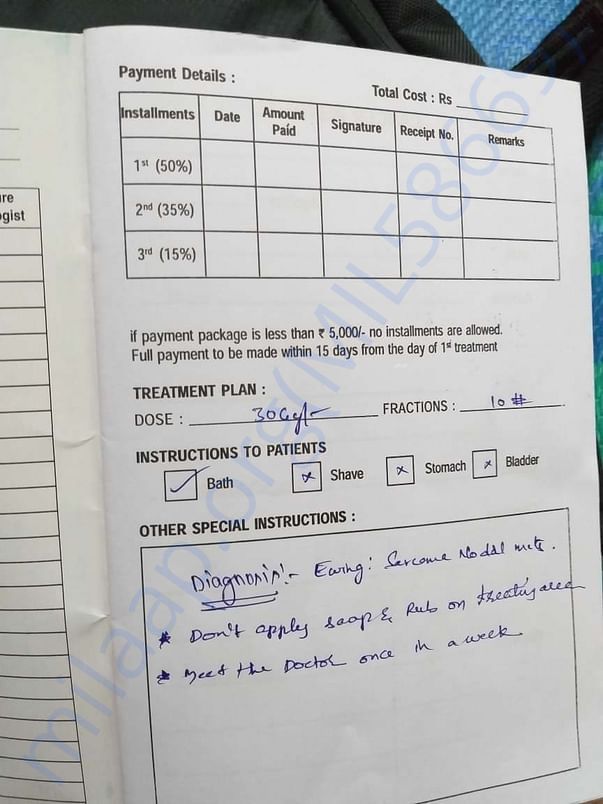 Payment Details :
Total Cost : Rs
Installments Date Amount Paid Signature Receipt No. Remarks
1st (50%)
2nd (35%)
3rd (15%)
if payment package is less than ₹ 5,000/- no installments are allowed.
Full payment to be made within 15 days from the day of 1st treatment
TREATMENT PLAN :
DOSE : 30Gy/- FRACTIONS : 10 #
INSTRUCTIONS TO PATIENTS
✓ Bath x Shave x Stomach x Bladder
OTHER SPECIAL INSTRUCTIONS :
Diagnosis:- Ewing: Sarcoma Nodal mets.
* Don't apply soap & Rub on treating area
* Meet the Doctor once in a week
ure
ogist
milaap.org(MIL586697)